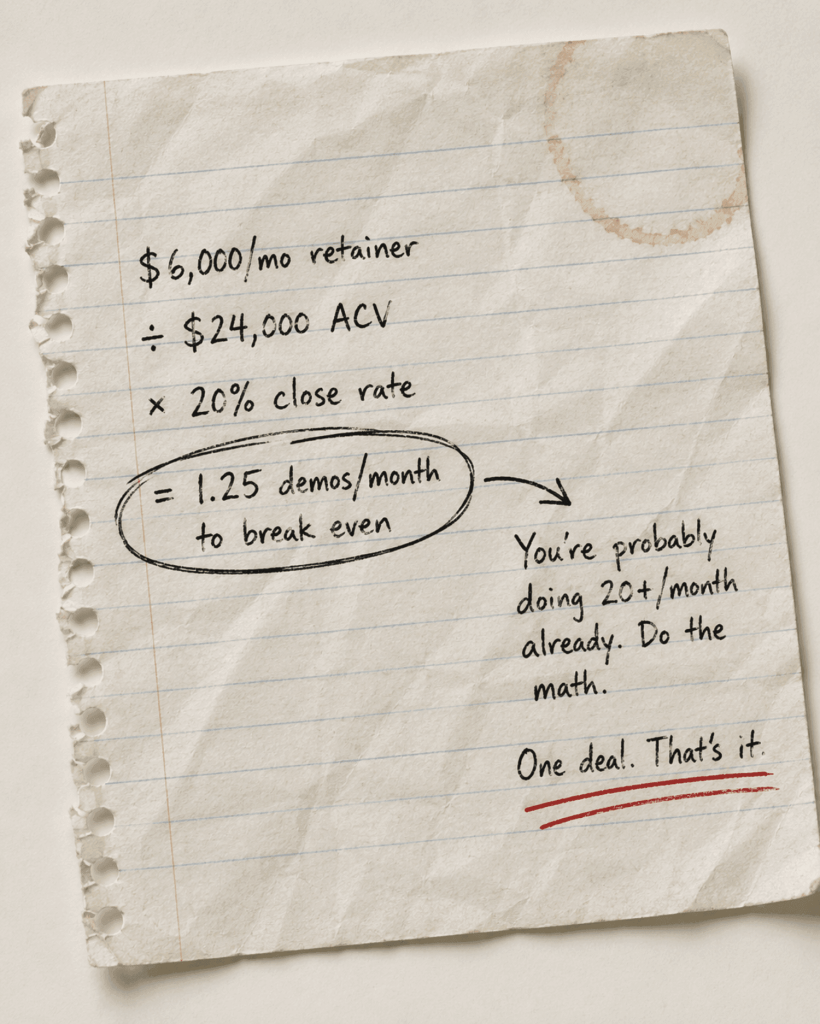 $6,000/mo retainer
÷ $24,000 ACV
× 20% close rate
= 1.25 demos/month
to break even
You're probably
doing 20+/month
already. Do the
math.
One deal. That's it.